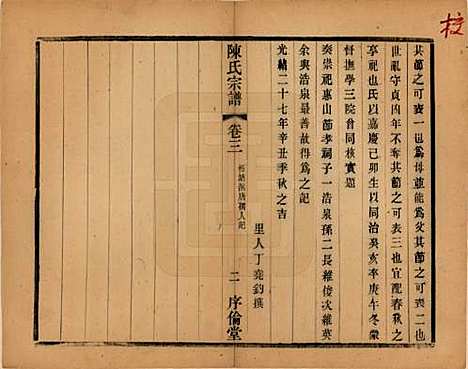 校
其節之可表一也母並能爲父其節之可表二也
世亂守貞凶年不奪其節之可表三也宜配春秋之
享祀也氏以嘉慶己卯生以同治癸亥卒庚午冬蒙
督撫學三院會同核實題
奏崇祀惠山節孝祠子一浩泉孫二長維俊次維英
余與浩泉最善故得爲之記
光緒二十七年辛丑季秋之吉
里人丁堯鈞撰
陳氏宗譜
卷三
唐孺人記
二
序倫堂